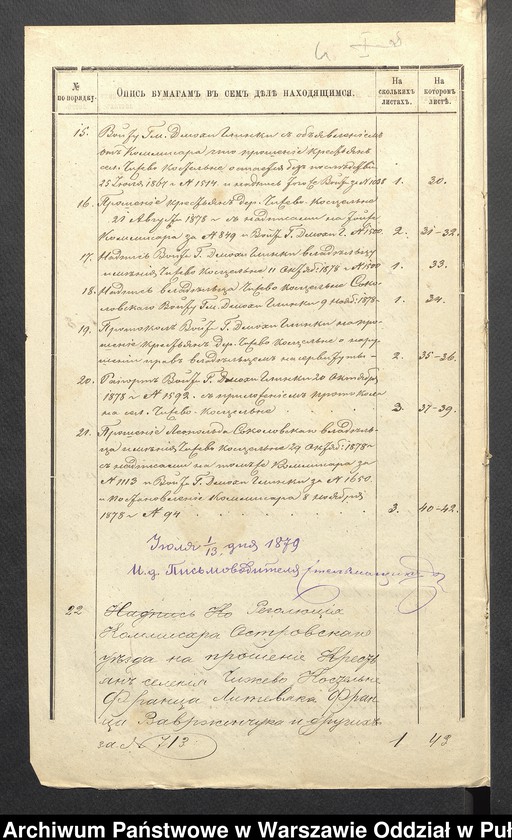 № по порядку.
Опись бумагамъ въ семъ дѣлѣ находящимся.
На сколькихъ листахъ.
На которомъ листѣ.
15. Войту Гм. Дмохи Глинки съ объявленіемъ
отъ Коммисара что прошеніе крестьянъ
сел. Чижево Косцельне остается безъ послѣдствій
25 Іюля 1867 г. № 1514 и надпись Войта за № 1038 1. 30.
16. Прошеніе крестьянъ дер. Чижево Косцельне
21 Августа 1878 г. съ надписями
Коммисара за № 849 и Войта Г. Дмохи Г. № 1500. 2. 31-32.
17. Надпись Войта Г. Дмохи Глинки владѣльцу
имѣнія Чижево Косцельне 11 Октяб. 1878 г. № 1500 1. 33.
18. Надпись владѣльца Чижево Косцельне Соко-
ловскаго Войту Гм. Дмохи Глинки 9 Нояб. 1878 1. 34.
19. Протоколъ Войта Г. Дмохи Глинки на про-
шеніе крестьянъ дер. Чижево Косцельне о нару-
шеніи правъ владѣльцемъ на сервитуты 2. 35-36.
20. Рапортъ Войта Г. Дмохи Глинки 20 Октября
1878 г. № 1592. съ приложеніемъ протокола
на сел. Чижево Косцельне 3. 37-39.
21. Прошеніе Леопольда Соколовскаго владѣль-
ца имѣнія Чижево Косцельне 29 Октяб. 1878 г.
съ надписями на томъ же Коммисара за
№ 1113 и Войта Г. Дмохи Глинки за № 1650
и постановленіе Коммисара 8 Ноября
1878 г. № 94 3. 40-42.
Іюля 1/13 дня 1879
И. д. Письмоводителя
22 Надпись На Резолюція
Коммисара Островскаго
уѣзда на прошеніе Кресть
янъ селенія Чижево Косцельне
Франца Литвяка Фран
ца Вавржинчука и другихъ
за № 713 1 43
Archiwum Państwowe w Warszawie Oddział w Puł